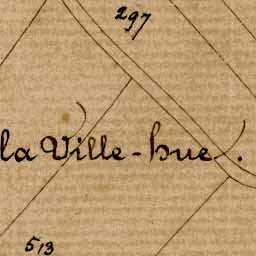 297
la Ville-hue.
513